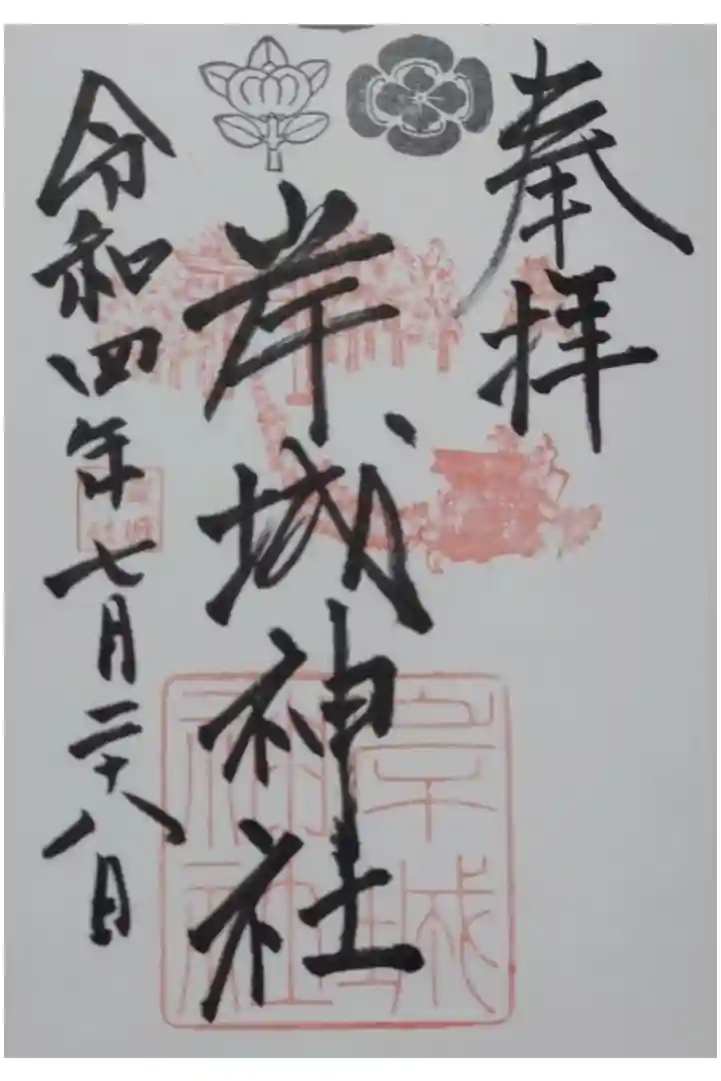 奉拝
岸城神社
令和四年七月二十八日
岸城
神社